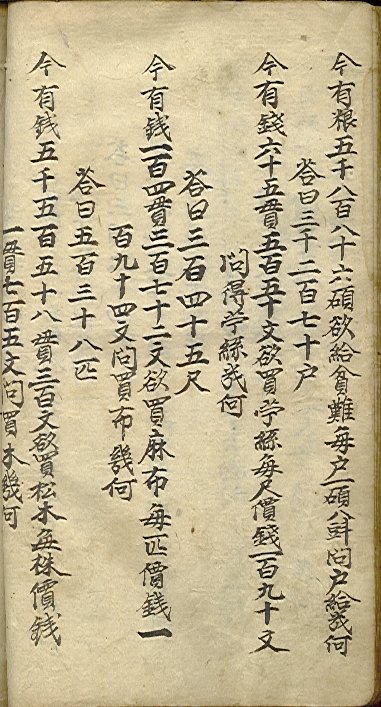 今有粮五千八百八十六碩欲給貧難每户一碩八㪷問户給㡬何
荅曰三千二百七十户
今有錢六十五貫五百五十文欲買苧絲每尺價錢一百九十文
問得苧絲㡬何
荅曰三百四十五尺
今有錢一百四貫三百七十二文欲買麻布每匹價錢一
百九十四文問買布幾何
荅曰五百三十八匹
今有錢五千五百五十八貫三百文欲買松木每株價錢
一貫七百五文問買木幾何